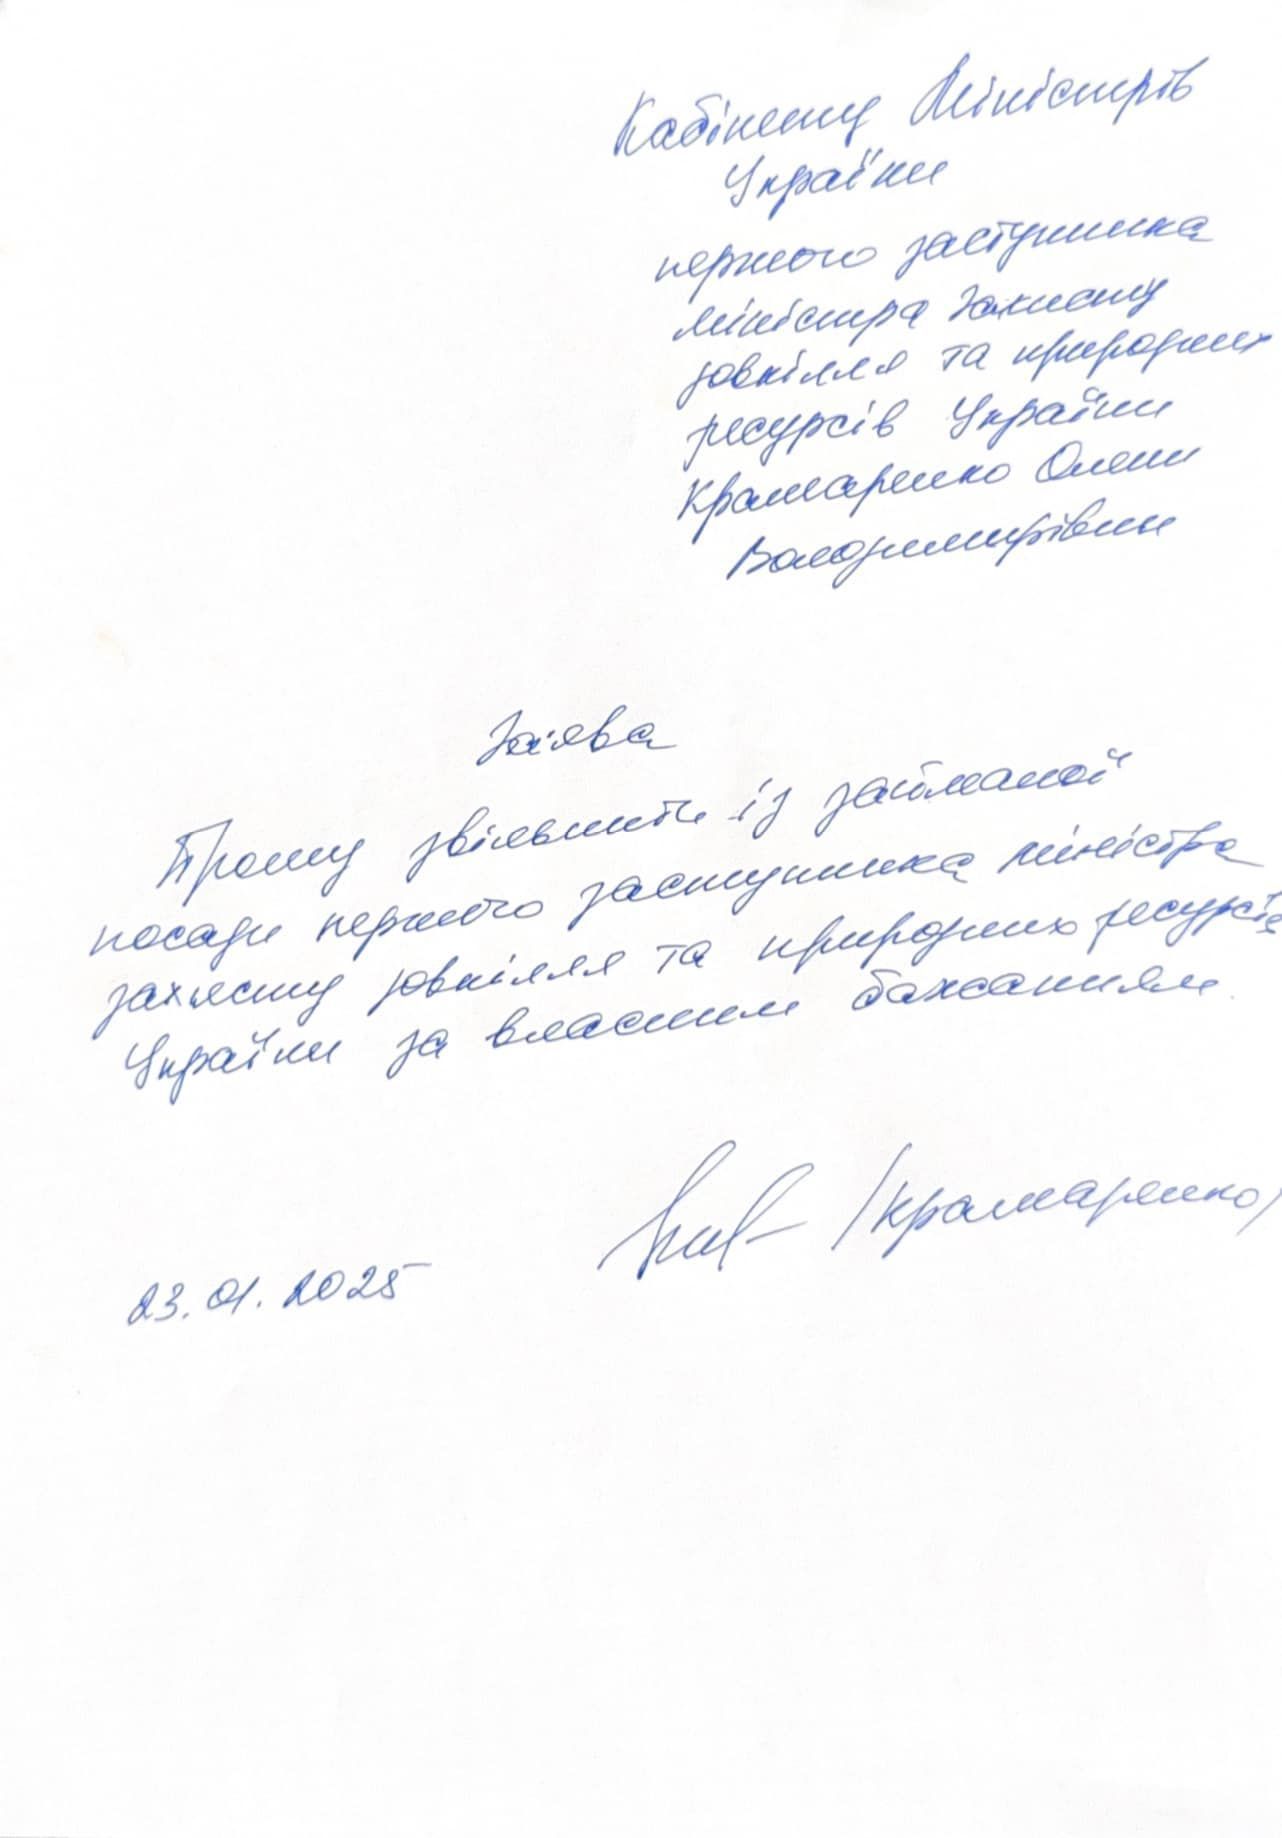 Кабінету Міністрів
України
першого заступника
міністра захисту
довкілля та природних
ресурсів України
Крамаренко Олени
Володимирівни
Заява
Прошу звільнити із займаної
посади першого заступника міністра
захисту довкілля та природних ресурсів
України за власним бажанням.
/Крамаренко/
23.01.2025